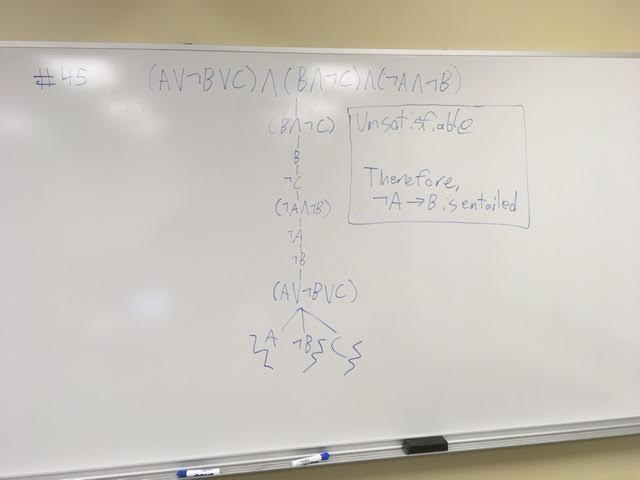 #45 (A∨¬B∨C)∧(B∧¬C)∧(¬A∧¬B)
(B∧¬C)
B
¬C
(¬A∧¬B)
¬A
¬B
(A∨¬B∨C)
A ¬B C
Unsatisfiable
Therefore,
¬A→B is entailed